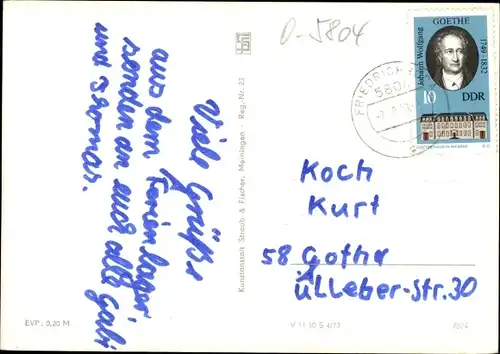 Viele Grüße
aus dem Ferienlager,
senden an euch alle Gabi
und Thomas.
EVP: 0,20 M
Kunstanstalt Straub & Fischer, Meiningen · Reg.-Nr. 23
D-5804
FRIEDRICH
580
GOETHE
1749-1832
Johann Wolfgang
10
DDR
Koch
Kurt
58 Gotha
Ulleber-Str.30
V 11 50 S 4/73